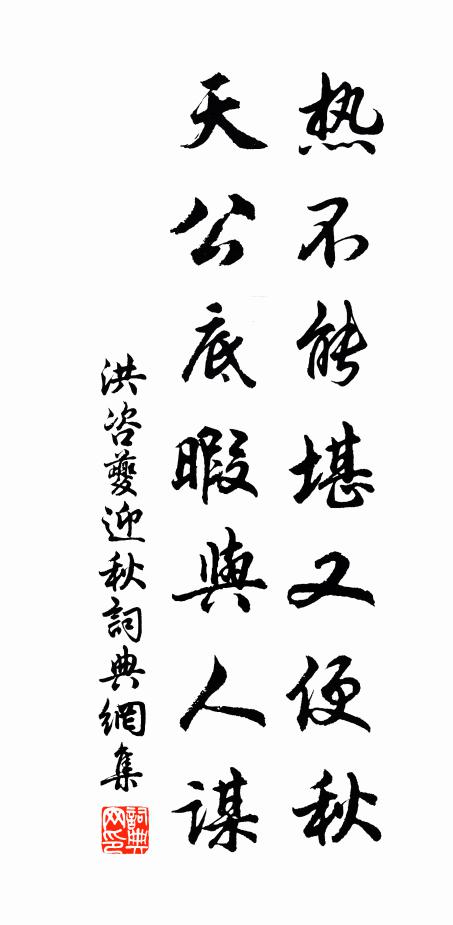 热不能堪又便秋
天公底暇与人谋
洪咨夔迎秋詞典網集
詞典网印